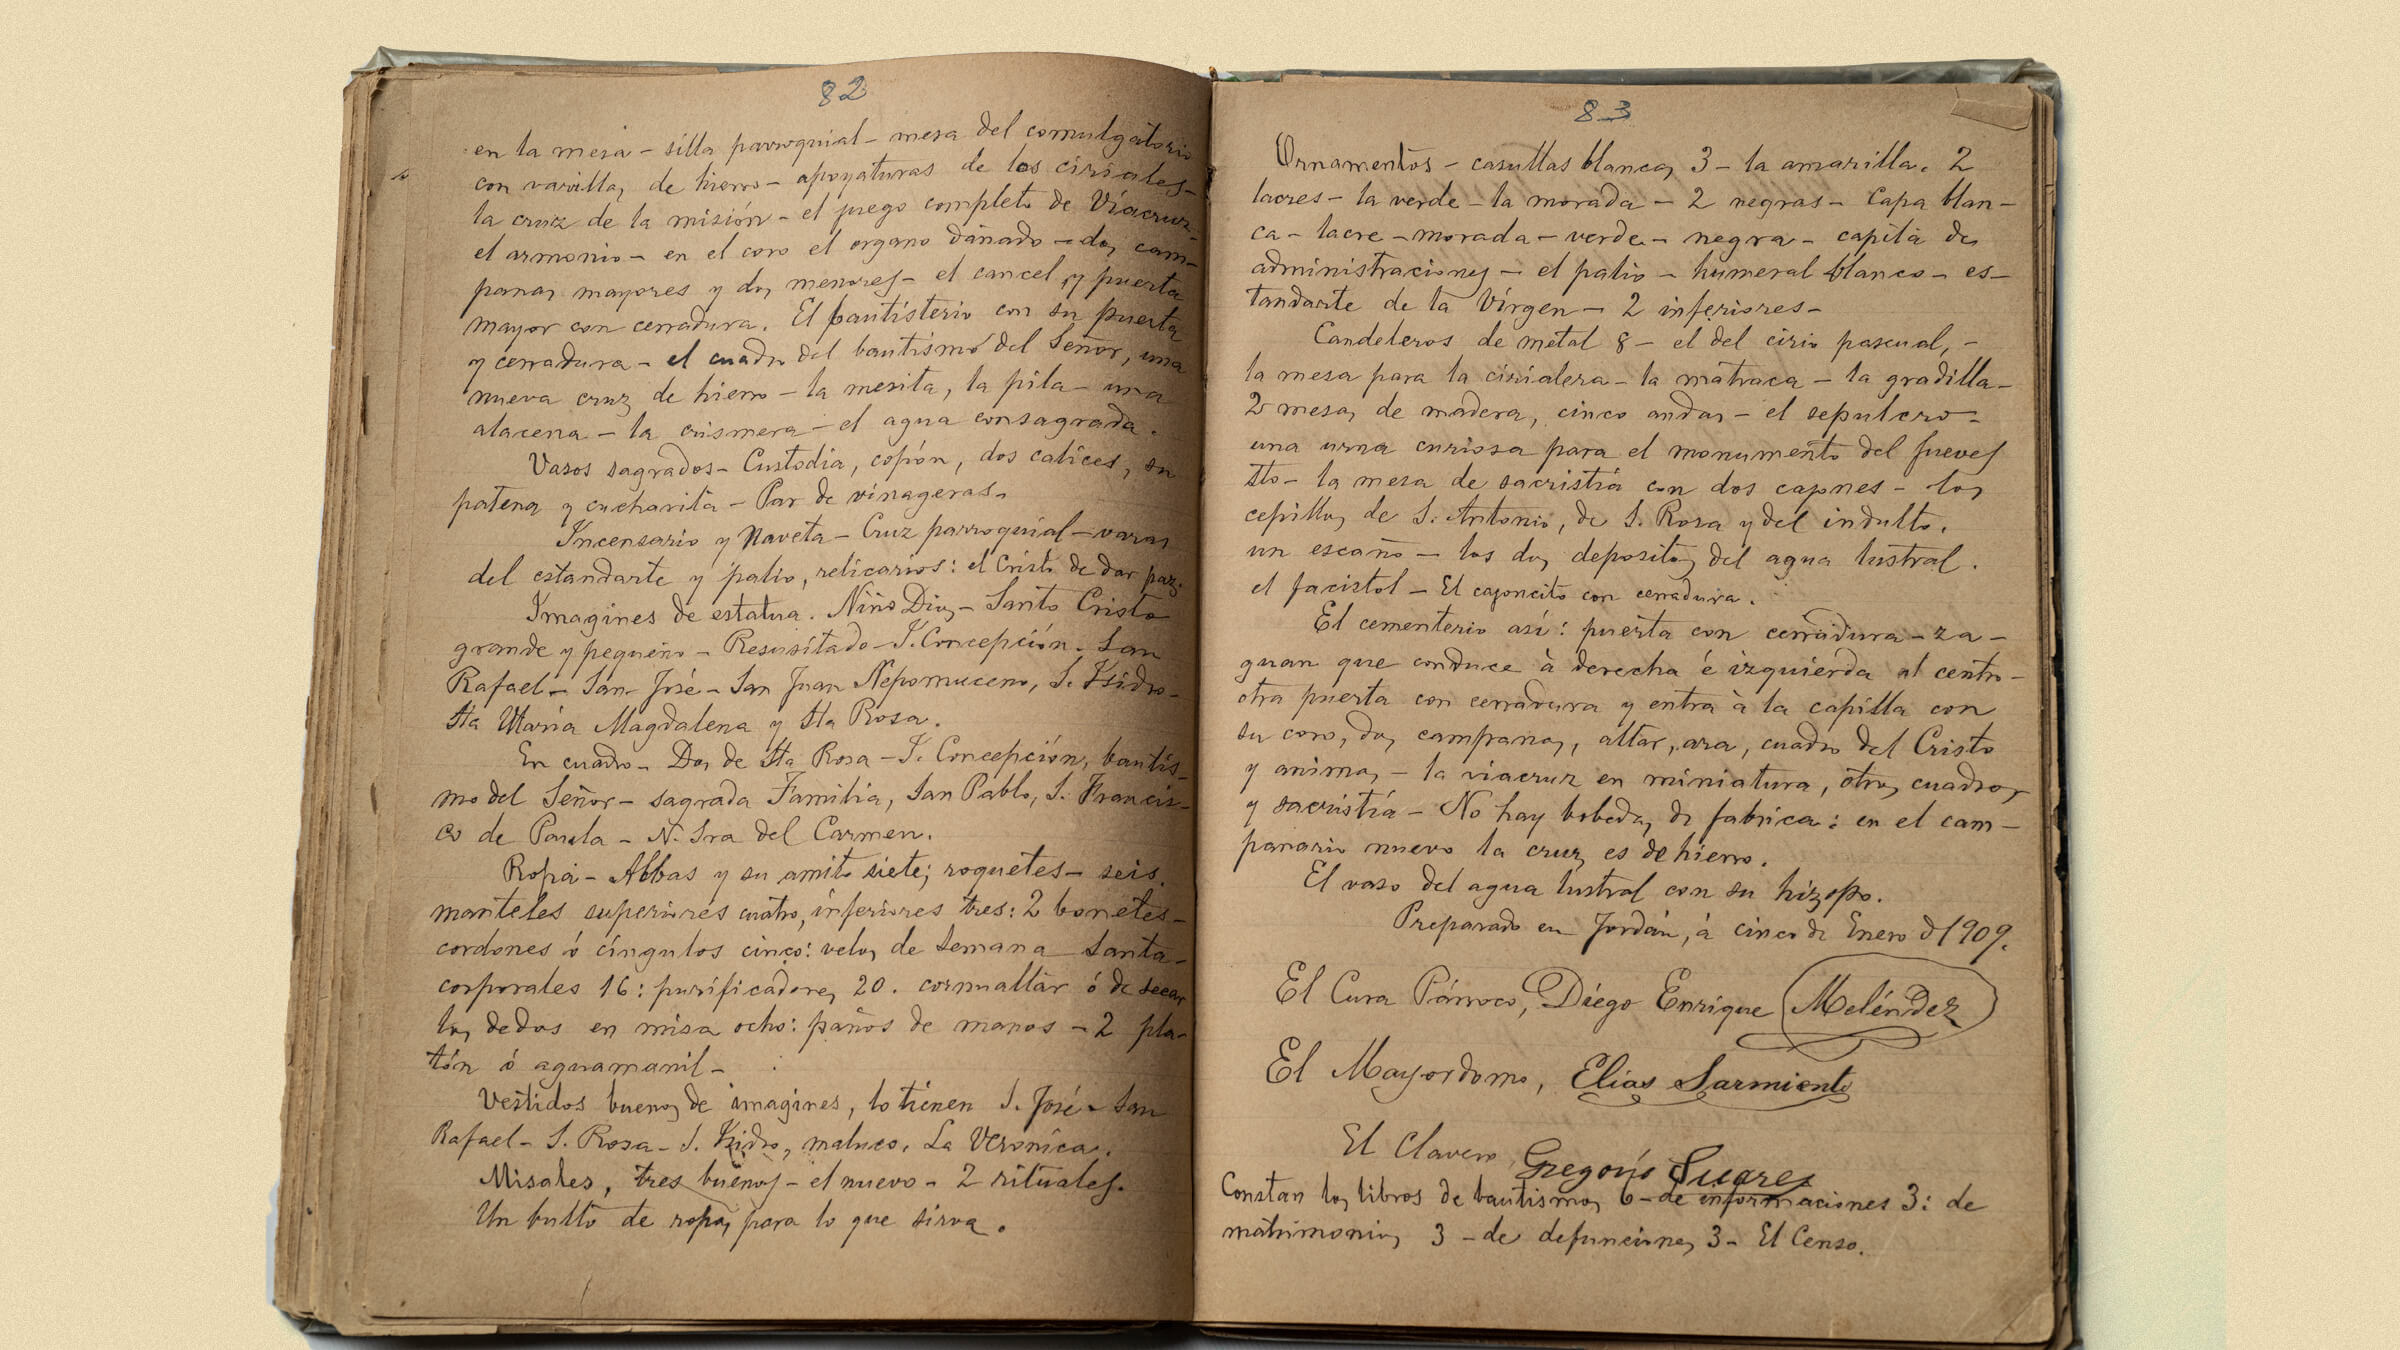 82
en la mesa - silla parroquial - mesa del comulgatorio
con varillas de hierro - apoyaturas de los ciriales -
la cruz de la misión - el juego completo de Viacruz -
el armonio - en el coro el organo dañado - dos cam-
panas mayores y dos menores - el cancel y puerta
mayor con cerradura. El bautisterio con su puerta
y cerradura - el cuadro del bautismo del Señor, una
nueva cruz de hierro - la mesita, la pila - una
alacena - la crismera - el agua consagrada.
Vasos sagrados - Custodia, copón, dos calices, su
patena y cucharita - Par de vinageras.
Incensario y Naveta - Cruz parroquial - varas
del estandarte y palio, relicarios: el Cristo de dar paz.
Imagines de estatua. Niño Dios - Santo Cristo
grande y pequeño - Resusitado - I. Concepción. San
Rafael - San José - San Juan Nepomuceno, S. Isidro -
Sta María Magdalena y Sta Rosa.
En cuadro - Dos de Sta Rosa - I. Concepción, bautis-
mo del Señor - sagrada Familia, San Pablo, S. Francis-
co de Paula - N. Sra del Carmen.
Ropa - Albas y su amito siete; roquetes - seis.
manteles superiores cuatro, inferiores tres: 2 bonetes -
cordones ó cíngulos cinco: velos de Semana Santa -
corporales 16: purificadores 20. cornualtar ó de secar
los dedos en misa ocho: paños de manos - 2 pla-
tón ó aguamanil -
Vestidos buenos de imagines, lo tienen S. José - San
Rafael - S. Rosa - S. Isidro, maluco. La Verónica.
Misales, tres buenos - el nuevo - 2 rituales.
Un bulto de ropas para lo que sirva.
83
Ornamentos - casullas blancas 3 - la amarilla. 2
lacres - la verde - la morada - 2 negras - Capa blan-
ca - lacre - morada - verde - negra - capita de
administraciones - el palio - humeral blanco - es-
tandarte de la Vírgen - 2 inferiores -
Candeleros de metal 8 - el del cirio pascual, -
la mesa para la cirialera - la matraca - la gradilla -
2 mesas de madera, cinco andas - el sepulcro -
una urna curiosa para el monumento del Jueves
Sto - la mesa de sacristía con dos cajones - los
cepillos de S. Antonio, de S. Rosa y del indulto.
un escaño - los dos depositos del agua lustral.
el facistol - El cajoncito con cerradura.
El cementerio así: puerta con cerradura - za-
guan que conduce à derecha é izquierda al centro -
otra puerta con cerradura y entra à la capilla con
su coro, dos campanas, altar, ara, cuadro del Cristo
y animas - la viacruz en miniatura, otros cuadros
y sacristía - No hay bobedas de fabrica: en el cam-
panario nuevo la cruz es de hierro.
El vaso del agua lustral con su hizopo.
Preparado en Jordán, á cinco de Enero d 1909.
El Cura Párroco, Diego Enrique Meléndez
El Mayordomo, Elias Sarmiento
El Clavero, Gregorio Suares
Constan los libros de bautismos 6 - de informaciones 3: de
matrimonios 3 - de defunciones 3 - El Censo.